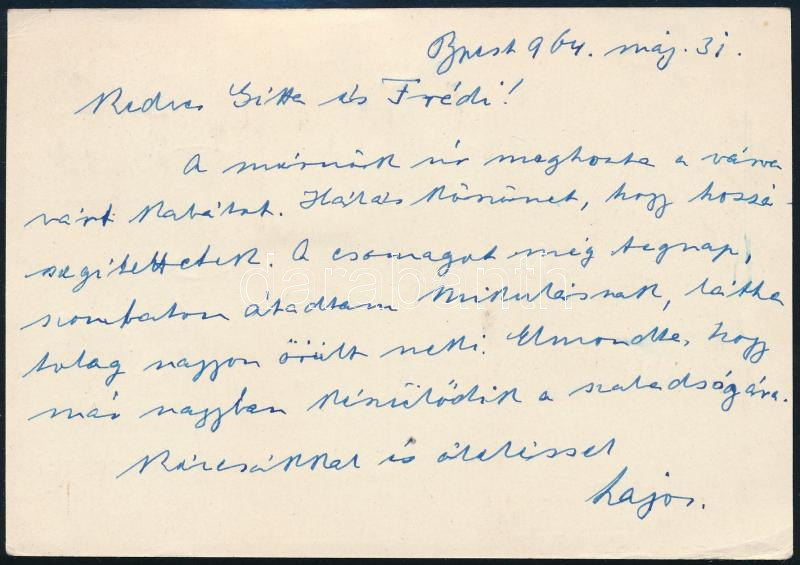 Bpest 964. máj. 31.
Kedves Gitta és Frédi!
A mérnök úr meghozta a várva
várt kabátot. Hálás köszönet, hogy hozzá-
segítettetek. A csomagot még tegnap,
szombaton átadtam Mikulásnak, látha
tolag nagyon örült neki. Elmondta, hogy
már nagyban készülődik a szabadságára.
Kézcsókkal és öleléssel
Lajos.
darabanth